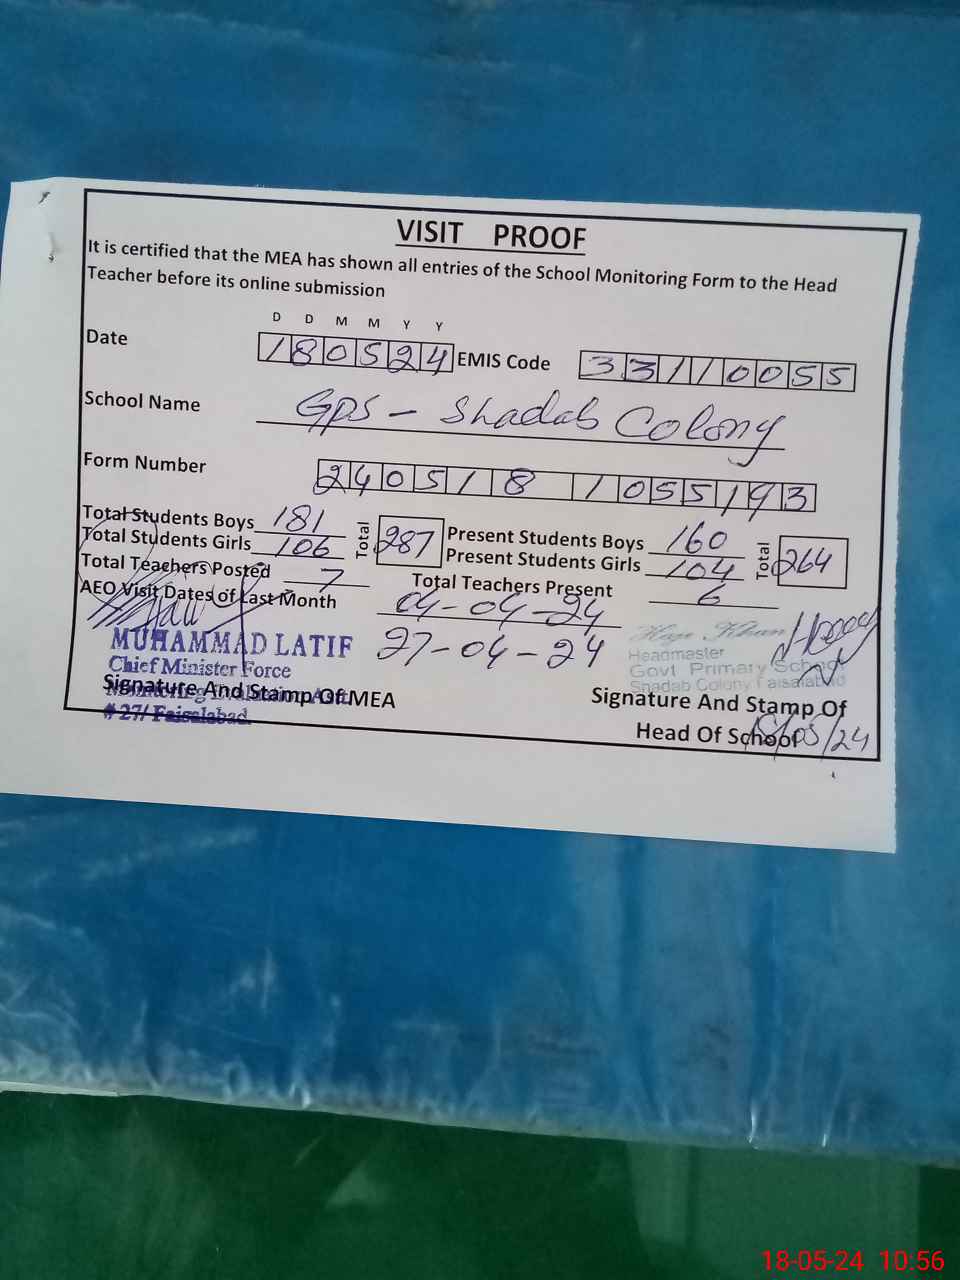 VISIT PROOF
It is certified that the MEA has shown all entries of the School Monitoring Form to the Head
Teacher before its online submission
D D M M Y Y
Date 180524 EMIS Code 33110055
School Name GPS - Shadab Colony
Form Number 2405181055193
Total Students Boys 181 Total 287 Present Students Boys 160 Total 264
Total Students Girls 106 Present Students Girls 104
Total Teachers Posted 7 Total Teachers Present 6
AEO Visit Dates of Last Month 04-04-24
27-04-24
MUHAMMAD LATIF
Chief Minister Force
# 27/ Faisalabad.
Signature And Stamp Of MEA
Khan
Headmaster
Govt Primary School
Shadab Colony Faisalabad
Signature And Stamp Of
Head Of School
18/05/24
18-05-24 10:56